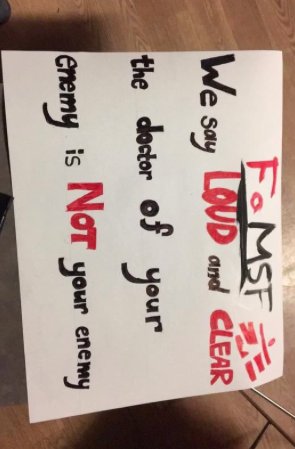 Fo MSF
We say LOUD and CLEAR
the doctor of your
enemy is NOT your enemy